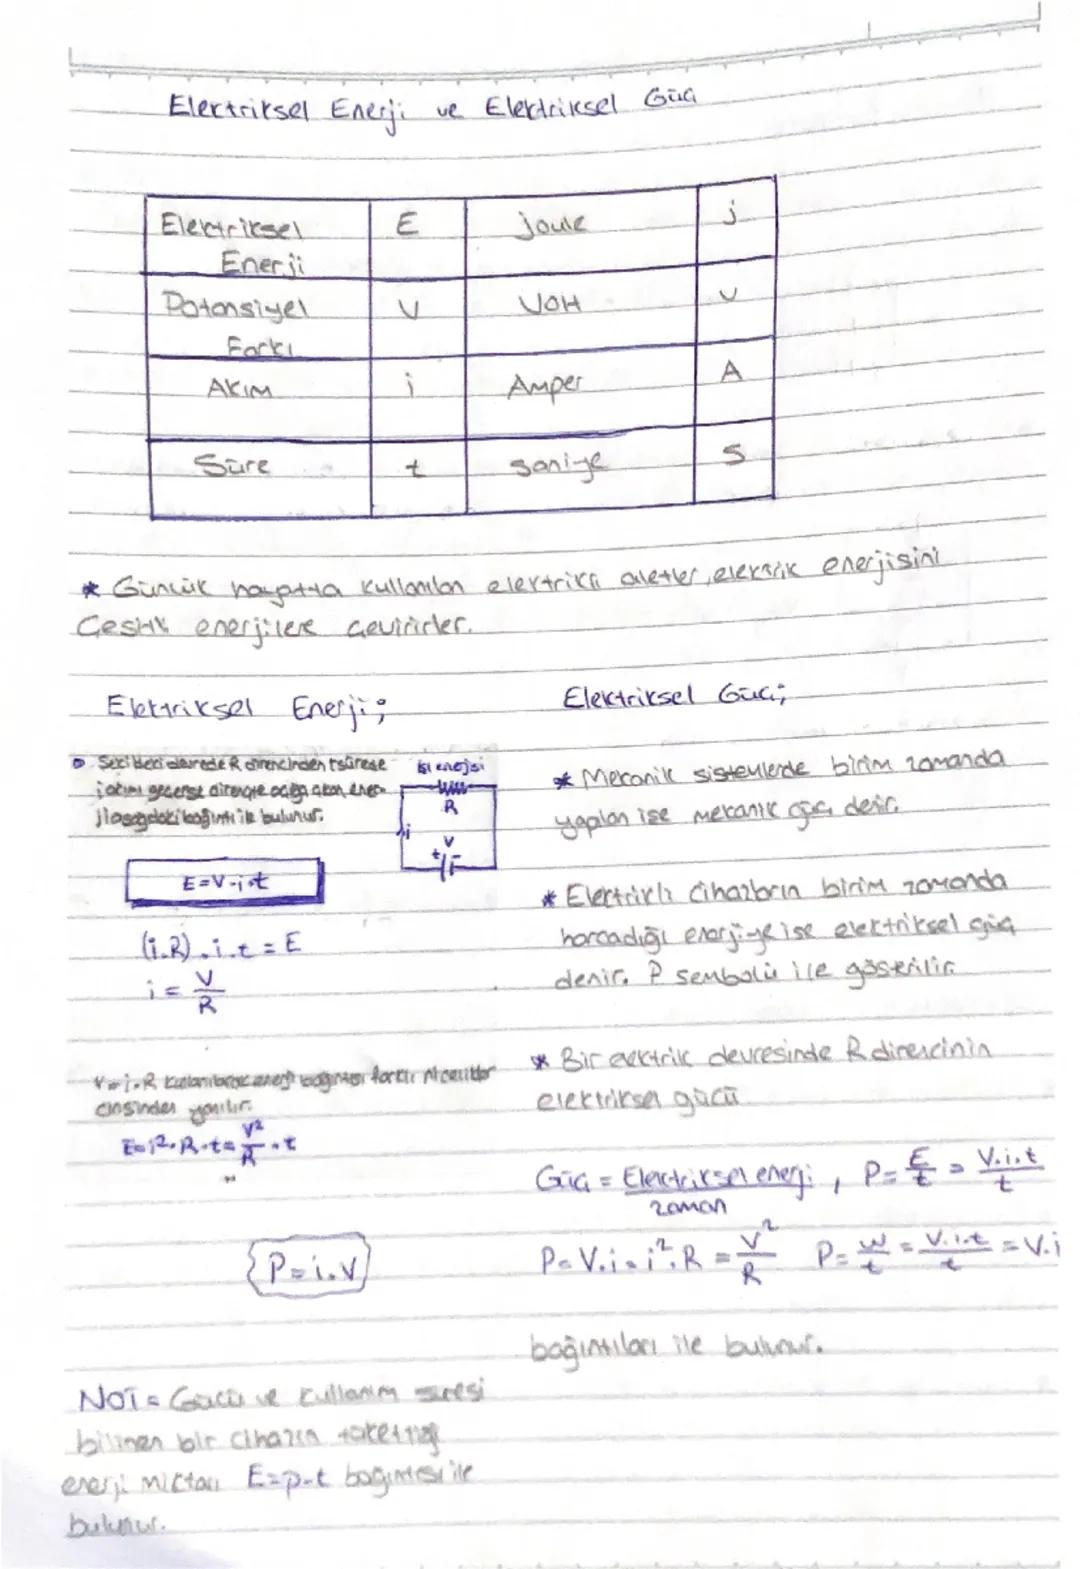 Elektriksel Enerji ve Elektriksel Güç
Elektriksel Enerji E joule j
Potansiyel Farkı V Volt V
Akım i Amper A
Süre t saniye s
* Günlük hayatta kullanılan elektrikli aletler, elektrik enerjisini
Çeşitli enerjilere çevirirler.
Elektriksel Enerji;
Şekildeki devrede R direncinden t sürede
i akımı geçerse dirençte açığa çıkan ener-
ji aşağıdaki bağıntı ile bulunur.
ısı enerjisi
R
i
V
+ -
E=V.i.t
(i.R).i.t = E
i = V/R
V=i.R kullanılarak enerji bağıntısı farklı nicelikler
cinsinden yazılır.
E=i².R.t=V²/R.t
P=i.V
NOT= Gücü ve kullanım süresi
bilinen bir cihazın tükettiği
enerji miktarı E=p.t bağıntısı ile
bulunur.
Elektriksel Güç;
* Mekanik sistemlerde birim zamanda
yapılan işe mekanik güç denir.
* Elektrikli cihazların birim zamanda
harcadığı enerjiye ise elektriksel güç
denir. P sembolü ile gösterilir.
* Bir elektrik devresinde R direncinin
elektriksel gücü
Güç = Elektriksel enerji / zaman , P=E/t = V.i.t/t
P=V.i=i².R=V²/R P=W/t=V.i.t/t=V.i
bağıntıları ile bulunur.